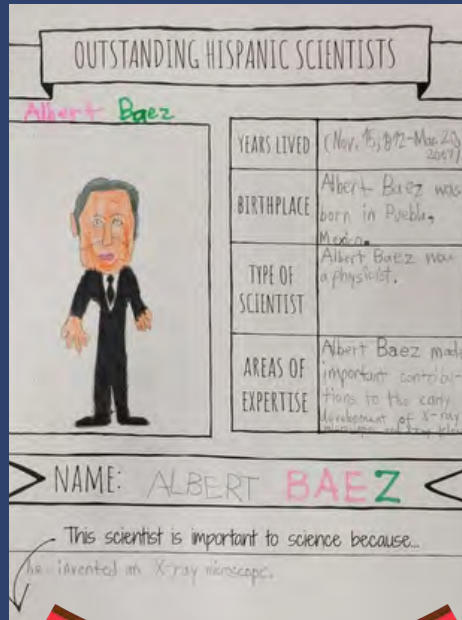 OUTSTANDING HISPANIC SCIENTISTS
Albert Baez
YEARS LIVED
(Nov. 15, 1912-Mar. 20,
2007)
BIRTHPLACE
Albert Baez was
born in Puebla,
Mexico.
TYPE OF
SCIENTIST
Albert Baez was
a physicist.
AREAS OF
EXPERTISE
Albert Baez made
important contribu-
tions to the early
development of X-ray
NAME: ALBERT BAEZ
This scientist is important to science because...
he invented an X-ray microscope.